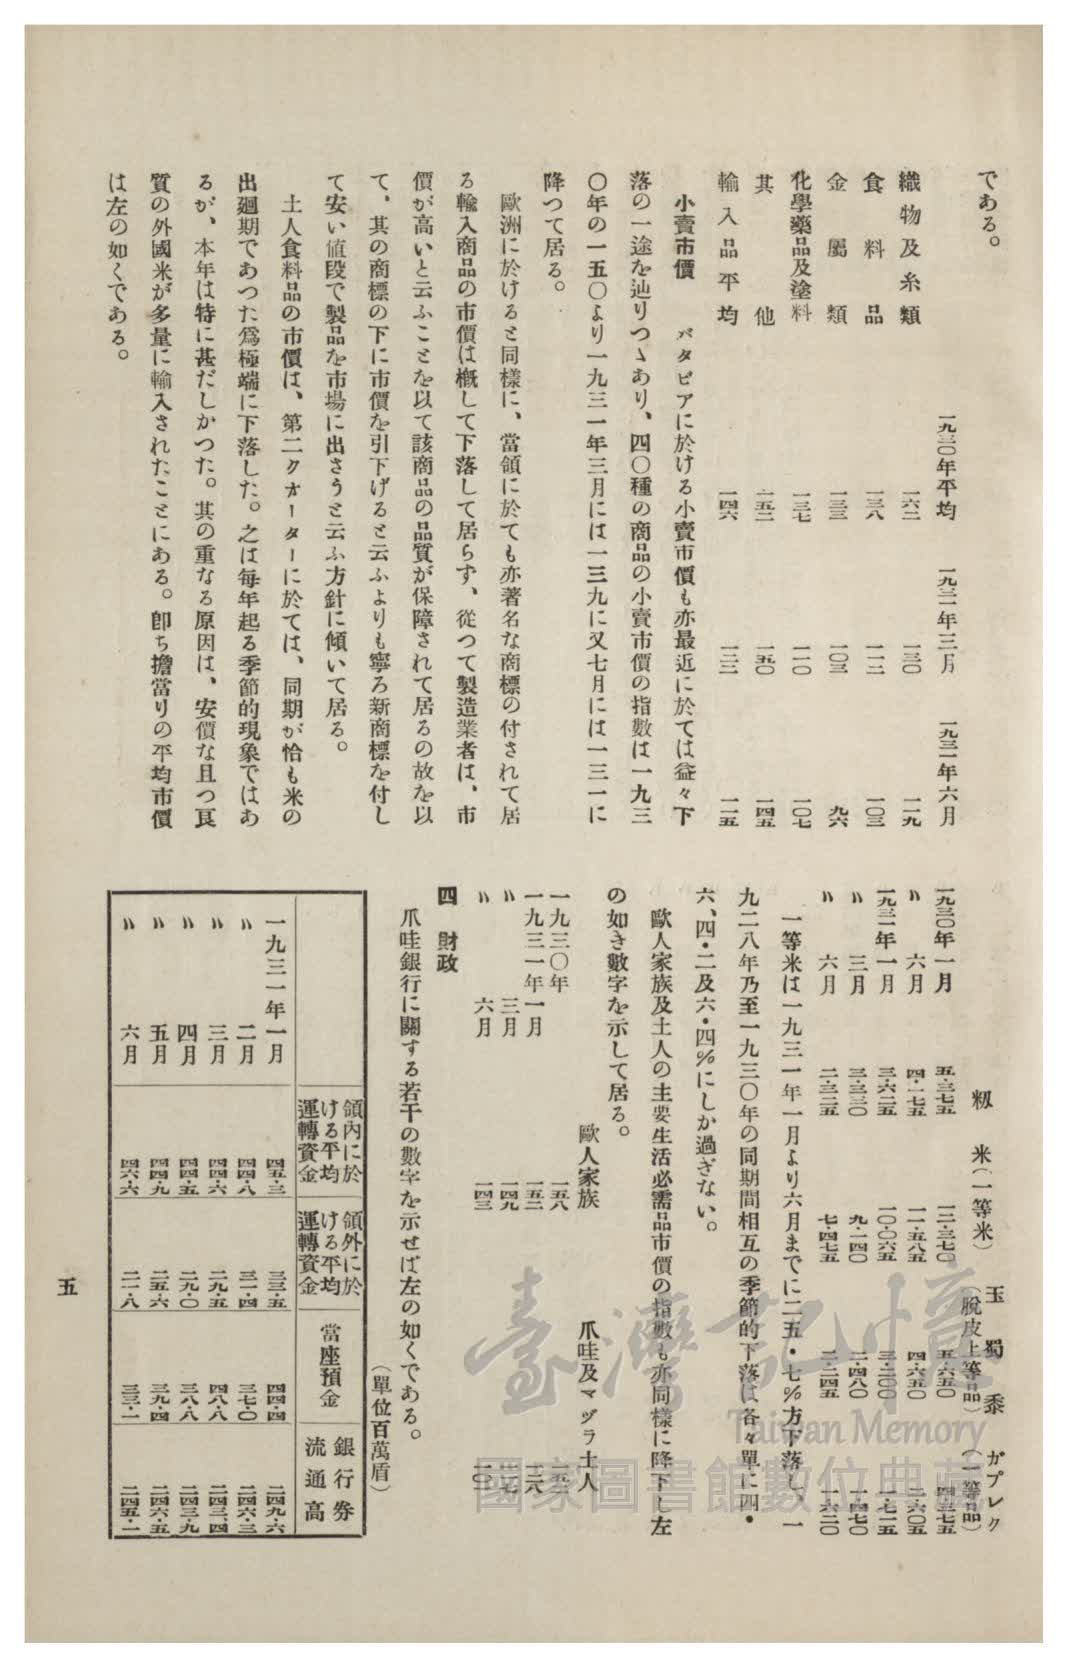 である。
一九三〇年平均　一九三一年三月　一九三一年六月
織物及糸類　一六二　一三〇　一一九
食料品　一三八　一一二　一〇三
金屬類　一三三　一〇三　九六
化學藥品及塗料　一三七　一一〇　一〇七
其他　一五二　一五〇　一四五
輸入品平均　一四六　一二二　一一五
小賣市價　バタビアに於ける小賣市價も亦最近に於ては益々下
落の一途を辿りつゝあり、四〇種の商品の小賣市價の指數は一九三
〇年の一五〇より一九三一年三月には一三九に又七月には一三一に
降つて居る。
歐洲に於けると同樣に、當領に於ても亦著名な商標の付されて居
る輸入商品の市價は槪して下落して居らず、從つて製造業者は、市
價が高いと云ふことを以て該商品の品質が保障されて居るの故を以
て、其の商標の下に市價を引下げると云ふよりも寧ろ新商標を付し
て安い値段で製品を市場に出さうと云ふ方針に傾いて居る。
土人食料品の市價は、第二クオーターに於ては、同期が恰も米の
出廻期であつた爲極端に下落した。之は每年起る季節的現象ではあ
るが、本年は特に甚だしかつた。其の重なる原因は、安價な且つ良
質の外國米が多量に輸入されたことにある。卽ち擔當りの平均市價
は左の如くである。
籾　米（一等米）　玉蜀黍（脫皮上等品）　ガプレク（一等品）
一九三〇年一月　五・三七五　一二・三七〇　五・六五〇　四・五七五
〃　六月　四・一七五　一一・五八五　四・六五〇　二・六〇五
一九三一年一月　三・六二五　一〇・〇六五　三・二〇〇　一・七一五
〃　三月　三・三三〇　九・一四〇　二・四八〇　一・四七〇
〃　六月　二・三二五　七・四七五　二・二四五　一・六二〇
一等米は一九三一年一月より六月までに二五・七％方下落し、一
九二八年乃至一九三〇年の同期間相互の季節的下落は各々單に四・
六、四・二及六・四％にしか過ぎない。
歐人家族及土人の主要生活必需品市價の指數も亦同樣に降下し左
の如き數字を示して居る。
歐人家族　爪哇及マヅラ土人
一九三〇年　一五八
一九三一年一月　一五二　一二八
〃　三月　一四九
〃　六月　一四三
四　財政
爪哇銀行に關する若干の數字を示せば左の如くである。
（單位百萬盾）
領內に於ける平均運轉資金　領外に於ける平均運轉資金　當座預金　銀行券流通高
一九三一年一月　四五・三　三三・五　四四・四　二四九・六
〃　二月　四四・八　三一・四　三七・〇　二四六・三
〃　三月　四四・六　二九・五　四八・八　二四三・四
〃　四月　四四・五　二九・〇　三八・八　二四三・九
〃　五月　四四・九　二五・六　三九・四　二四六・五
〃　六月　四六・六　二一・八　三三・一　二四五・一
五
臺灣記憶
Taiwan Memory
國家圖書館數位典藏